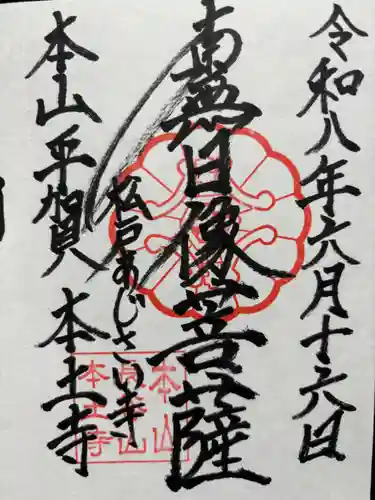 令和八年六月十六日
南無日像菩薩
松戸あじさい寺
本山平賀 本土寺
本山
本土寺